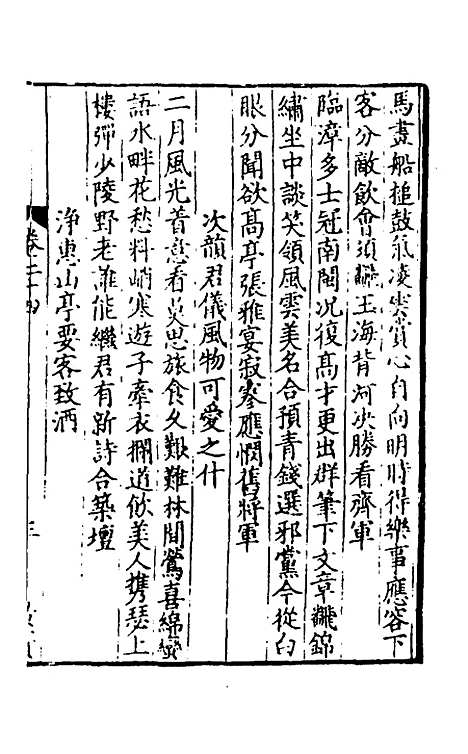 馬畫船槌鼓氣凌雲賞心自向明時得樂事應容下
客分敵飲會須飜玉海背河決勝看齊軍
臨漳多士冠南閩况復髙才更出群筆下文章飜錦
繡坐中談笑領風雲美名合預青錢選邪黨今從白
眼分聞欲髙亭張雅宴寂寥應憫舊將軍
次韻君儀風物可愛之什
二月風光着意看莫思旅食久艱難林間鶯喜綿蠻
語水畔花愁料峭寒遊子牽衣攔道飲美人携瑟上
樓彈少陵野老誰能繼君有新詩合築壇
浄惠山亭要客致酒
卷二十四
三